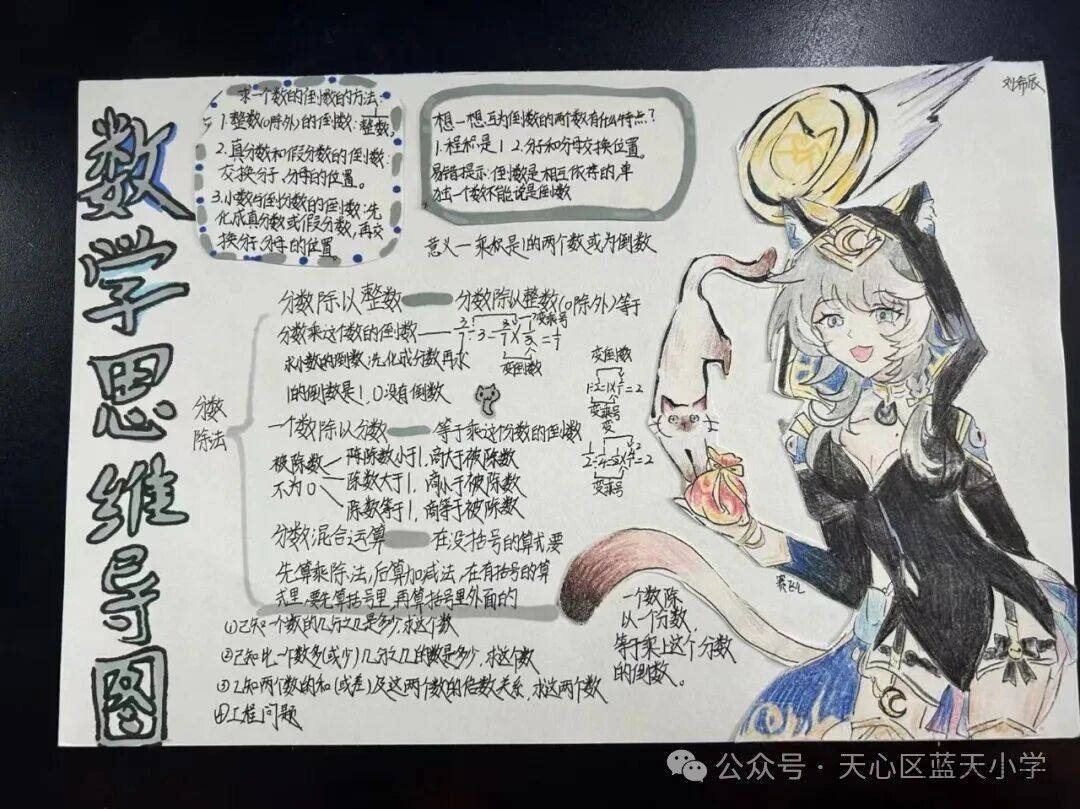 数学思维导图
刘希辰
求一个数的倒数的方法:
1.整数(0除外)的倒数: 1/整数,
2.真分数和假分数的倒数:
交换分子,分母的位置。
3.小数与倒份数的倒数:先
化成真分数或假分数,再交
换分子分母的位置
想一想互为倒数的两个数有什么特点?
1.程积是1 2.分子和分母交换位置。
易错提示:倒数是相互依存的,单
独一个数不能说是倒数
意义一乘积是1的两个数或为倒数
分数除以整数 分数除以整数(0除外)等于
分数乘这个数的倒数 变乘号
变倒数
求小数的倒数:先化成分数再求
1的倒数是1,0没有倒数
变倒数
1÷
变乘号
分数
除法
一个数除以分数 等于乘这个分数的倒数
被除数
不为0
除数小于1,商大于被除数
除数大于1,商小于被除数
除数等于1,商等于被除数
变
变乘号
分数混合运算 在没括号的算式要
先算乘除法,后算加减法,在有括号的算
式里,要先算括号里,再算括号里外面的
①已知一个数的几分之几是多少,求这个数
②已知比一个数多(或少)几分之几的数是多少,求这个数
③已知两个数的和(或差)及这两个数的倍数关系,求这两个数
④工程问题
一个数除
以一个分数,
等于乘上这个分数
的倒数。
赛飞儿
公众号·天心区蓝天小学